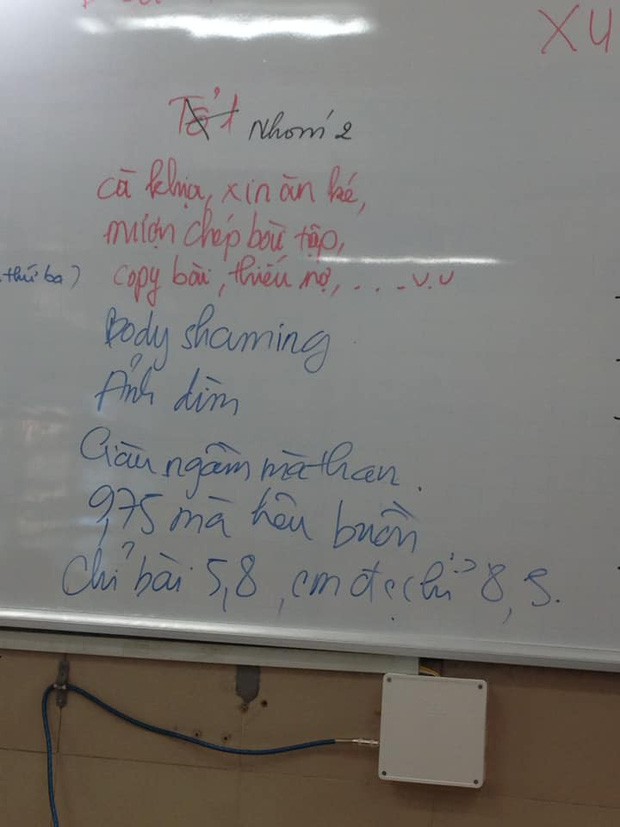 XU
Tổ 1 Nhóm 2
cà khịa, xin ăn ké,
mượn chép bài tập,
thứ ba) copy bài, thiếu nợ, . . . v.v
Body shaming
Ảnh dìm
Giàu ngầm mà than.
9,75 mà kêu buồn
Chỉ bài 5,8, em đc chỉ 8,5.